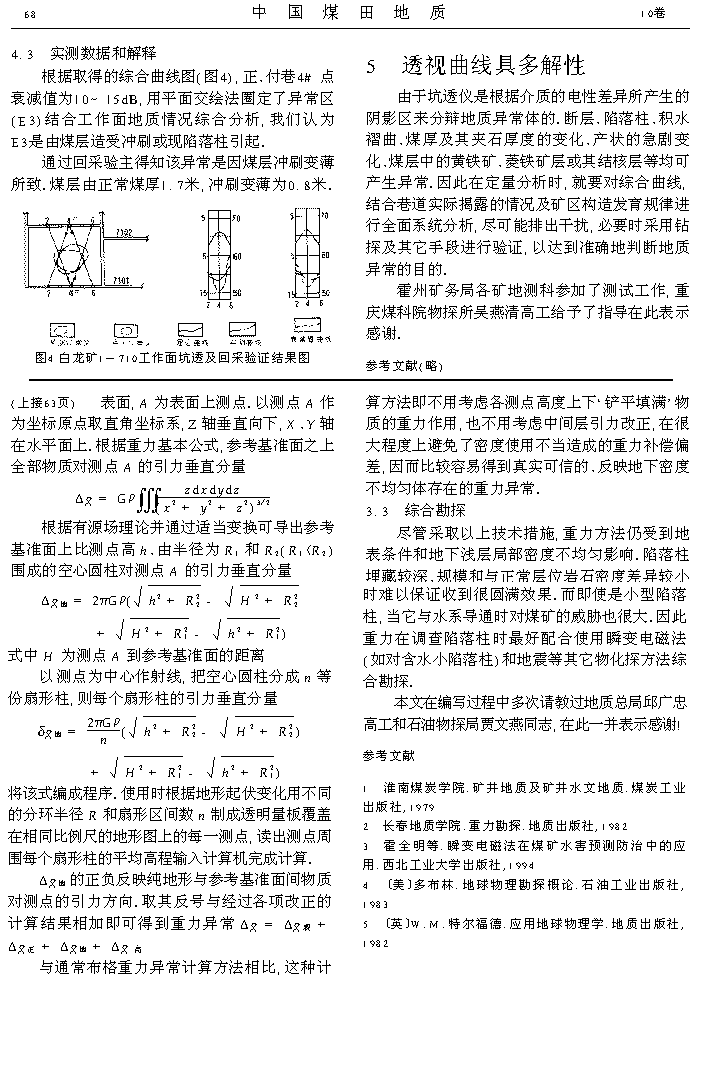 68
中国煤田地质
10卷
4.3 实测数据和解释
根据取得的综合曲线图(图4),正.付巷4# 点
衰减值为10~15dB,用平面交绘法圈定了异常区
(E3)结合工作面地质情况综合分析,我们认为
E3是由煤层造受冲刷或现陷落柱引起.
通过回采验主得知该异常是因煤层冲刷变薄
所致.煤层由正常煤厚1.7米,冲刷变薄为0.8米.
2 4 6
7102
7101
2 4 6
5 70
5 60
15 50
2 4 6
5 70
5 60
15 50
2 4 6
图4 白龙矿1-710工作面坑透及回采验证结果图
5 透视曲线具多解性
由于坑透仪是根据介质的电性差异所产生的
阴影区来分辩地质异常体的.断层.陷落柱.积水
褶曲.煤厚及其夹石厚度的变化.产状的急剧变
化.煤层中的黄铁矿.菱铁矿层或其结核层等均可
产生异常.因此在定量分析时,就要对综合曲线,
结合巷道实际揭露的情况及矿区构造发育规律进
行全面系统分析,尽可能排出干扰,必要时采用钻
探及其它手段进行验证,以达到准确地判断地质
异常的目的.
霍州矿务局各矿地测科参加了测试工作,重
庆煤科院物探所吴燕清高工给予了指导在此表示
感谢.
参考文献(略)
(上接63页) 表面,A 为表面上测点.以测点 A 作
为坐标原点取直角坐标系,Z 轴垂直向下,X.Y 轴
在水平面上.根据重力基本公式,参考基准面之上
全部物质对测点 A 的引力垂直分量
Δg = Gρ∭ zdxdydz/(x² + y² + z²)^3/2
根据有源场理论并通过适当变换可导出参考
基准面上比测点高 h.由半径为 R₁ 和 R₂(R₁<R₂)
围成的空心圆柱对测点 A 的引力垂直分量
Δg地 = 2πGρ(√h² + R₂² - √H² + R₂²
+ √H² + R₁² - √h² + R₁²)
式中 H 为测点 A 到参考基准面的距离
以测点为中心作射线,把空心圆柱分成 n 等
份扇形柱,则每个扇形柱的引力垂直分量
δg地 = 2πGρ/n (√h² + R₂² - √H² + R₂²)
+ √H² + R₁² - √h² + R₁²)
将该式编成程序.使用时根据地形起伏变化用不同
的分环半径 R 和扇形区间数 n 制成透明量板覆盖
在相同比例尺的地形图上的每一测点,读出测点周
围每个扇形柱的平均高程输入计算机完成计算.
Δg地的正负反映纯地形与参考基准面间物质
对测点的引力方向.取其反号与经过各项改正的
计算结果相加即可得到重力异常 Δg = Δg观 +
Δg正 + Δg地 + Δg高
与通常布格重力异常计算方法相比,这种计
算方法即不用考虑各测点高度上下‘铲平填满’物
质的重力作用,也不用考虑中间层引力改正,在很
大程度上避免了密度使用不当造成的重力补偿偏
差,因而比较容易得到真实可信的.反映地下密度
不均匀体存在的重力异常.
3.3 综合勘探
尽管采取以上技术措施,重力方法仍受到地
表条件和地下浅层局部密度不均匀影响.陷落柱
埋藏较深.规模和与正常层位岩石密度差异较小
时难以保证收到很圆满效果.而即使是小型陷落
柱,当它与水系导通时对煤矿的威胁也很大.因此
重力在调查陷落柱时最好配合使用瞬变电磁法
(如对含水小陷落柱)和地震等其它物化探方法综
合勘探.
本文在编写过程中多次请教过地质总局邱广忠
高工和石油物探局贾文燕同志,在此一并表示感谢!
参考文献
1 淮南煤炭学院.矿井地质及矿井水文地质.煤炭工业
出版社,1979
2 长春地质学院.重力勘探.地质出版社,1982
3 霍全明等.瞬变电磁法在煤矿水害预测防治中的应
用.西北工业大学出版社,1994
4 〔美〕多布林.地球物理勘探概论.石油工业出版社,
1983
5 〔英〕W.M.特尔福德.应用地球物理学.地质出版社,
1982